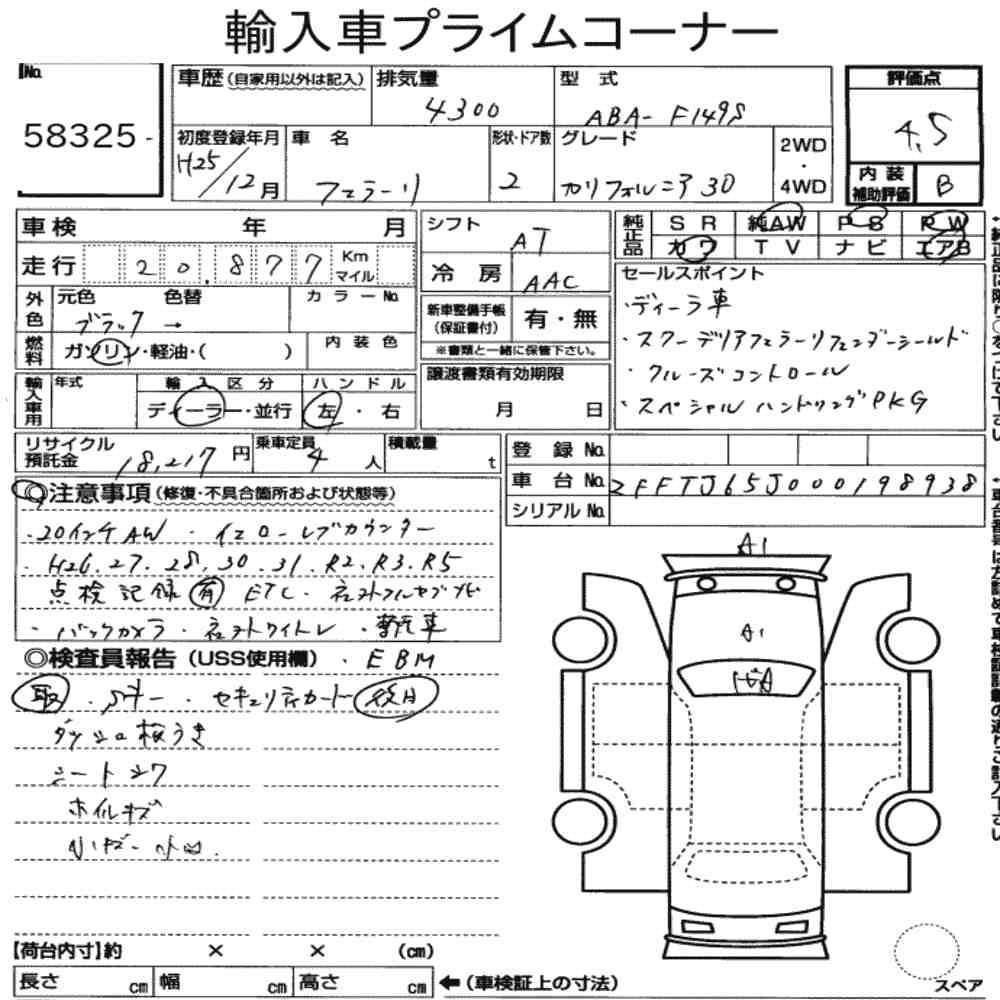 輸入車プライムコーナー
No.
58325-
車歴(自家用以外は記入)
排気量
4300
型 式
ABA-F149S
評価点
4.5
内装
補助評価
B
初度登録年月
H25/12月
車 名
フェラーリ
形状・ドア数
2
グレード
カリフォルニア30
2WD
・
4WD
車検 年 月
走行
20,877
Km
マイル
外色
元色 色替
ブラック →
カラーNo.
燃料
ガソリン・軽油・( )
内装色
輸入車用
年式
輸入区分
ディーラー・並行
ハンドル
左・右
リサイクル
預託金
18,217円
乗車定員
4人
積載量
t
シフト
AT
冷房
AAC
新車整備手帳
(保証書付)
有・無
※書類と一緒に保管下さい。
譲渡書類有効期限
月 日
純正品
SR 純AW PS PW
カワ TV ナビ エアB
セールスポイント
・ディーラ車
・スクーデリアフェラーリフェンダーシールド
・クルーズコントロール
・スペシャルハンドリングPKG
登録No.
車台No.
ZFFTJ65J000198938
シリアルNo.
◎注意事項(修復・不具合箇所および状態等)
・20インチAW ・イエローレブカウンター
・H26.27.28.30.31.R2.R3.R5
点検記録有 ETC・
・バックカメラ・
◎検査員報告(USS使用欄)・EBM
取 ・Sキー ・セキュリティカード後日
ダッシュ板うき
シートシワ
ホイルキズ
小キズ・小凹
A1
A1
【荷台内寸】約 × × (cm)
長さ cm 幅 cm 高さ cm
←(車検証上の寸法)
スペア